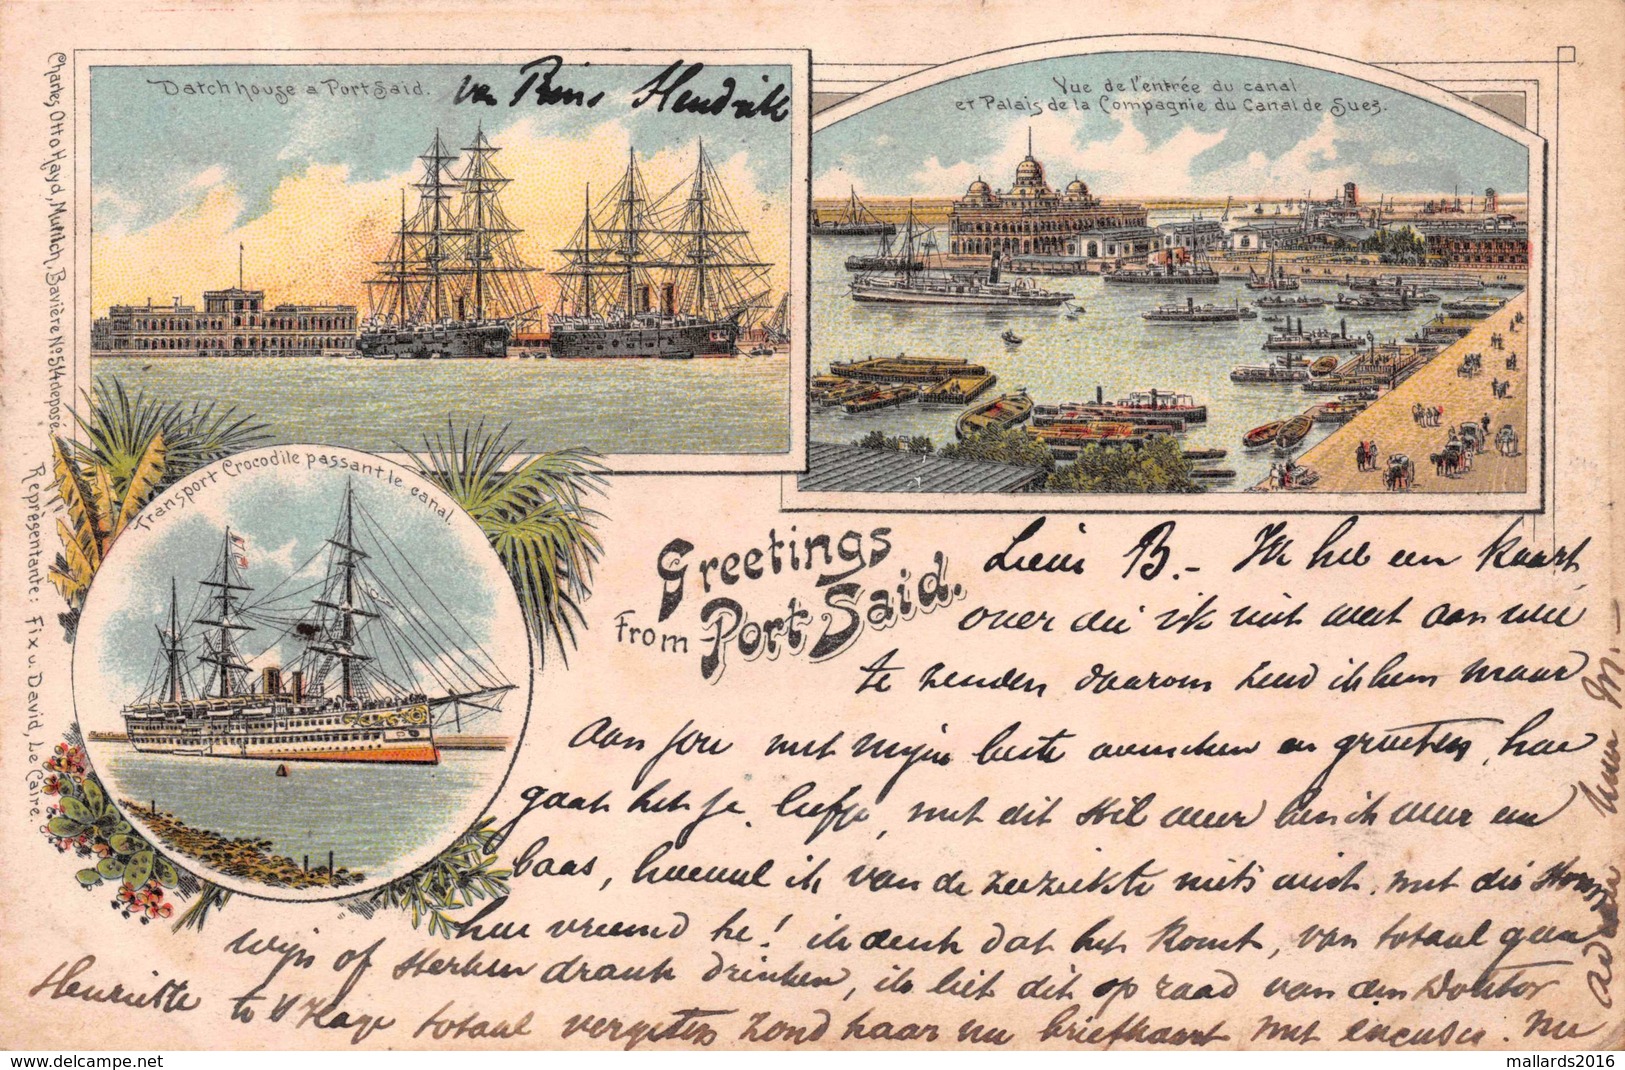 Datch house a Port Said.
van Prins Hendrik
Vue de l'entrée du canal
et Palais de la Compagnie du Canal de Suez.
Charles Otto Hayd, Munich, Bavière No. 514 deposé.
Représentante: Fix u. David, Le Caire.
Transport Crocodile passant le canal.
Greetings
From Port Said.
B.- Ik heb een kaart,
over die ik niet weet aan wie
te zenden daarom zend ik hem maar
aan jou met mijn beste wenschen en groeten, hoe
gaat het je liefje, met dit stil weer ben ik weer een
baas, hoewel ik van de zeeziekte niets wist. met die storm
hee vreemd he! ik denk dat het komt, van totaal geen
wijn of sterken drank drinken, ik liet dit op raad van den Doktor
Henriette te 's Hage totaal vergeten zond haar nu briefkaart met excuses. Nu